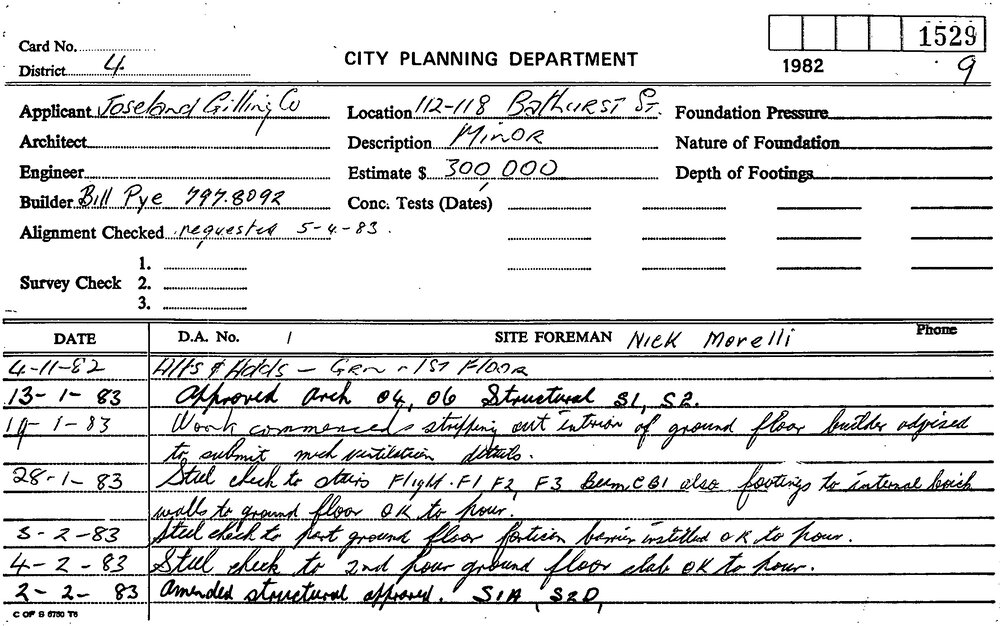 1529
Card No.
CITY PLANNING DEPARTMENT
1982
9
District 4
Applicant Joseland Gilling Co Location 112-118 Bathurst St. Foundation Pressure
Architect Description Minor Nature of Foundation
Engineer Estimate $ 300,000 Depth of Footings
Builder Bill Pye 797.8092 Conc. Tests (Dates)
Alignment Checked requested 5-4-83.
1.
Survey Check 2.
3.
DATE D.A. No. / SITE FOREMAN Nick Morelli Phone
4-11-82 Alts & Adds - Grn - 1st Floor
13-1-83 Approved Arch 04, 06 Structural S1, S2.
19-1-83 Work commenced stripping out interior of ground floor builder advised
to submit mech ventilation details.
28-1-83 Steel check to stairs Flight.F1 F2, F3 Beam CB1 also footings to internal brick
walls to ground floor OK to pour.
3-2-83 Steel check to part ground floor barrier installed OK to pour.
4-2-83 Steel check to 2nd pour ground floor slab OK to pour.
2-2-83 Amended structural approved. S1A, S2D,
C OF S 6750 T6